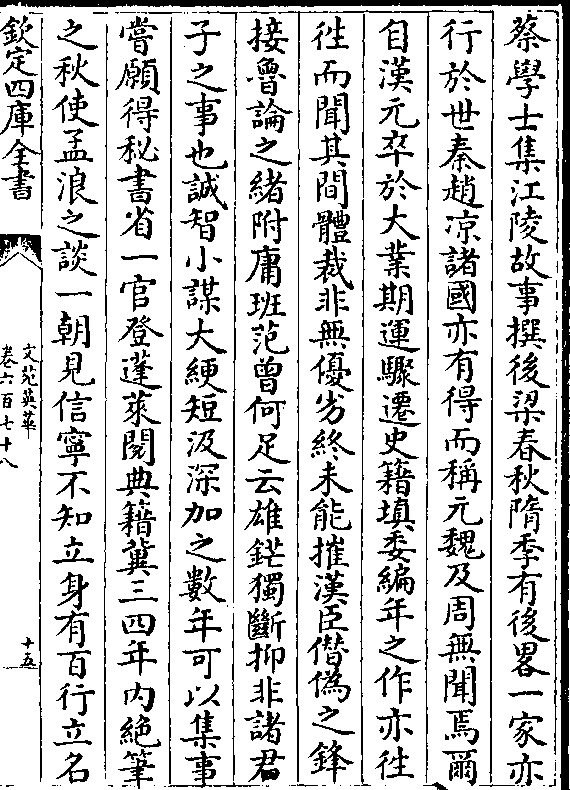 蔡學士集江陵故事撰後梁春秋隋季有後畧一家亦
行於世秦趙凉諸國亦有得而稱元魏及周無聞焉爾
自漢元卒於大業期運驟遷史籍填委編年之作亦徃
徃而聞其間體裁非無優劣終未能摧漢臣僭偽之鋒
接魯論之緒附庸班范曾何足云雄鋩獨斷抑非諸君
子之事也誠智小謀大綆短汲深加之數年可以集事
嘗願得秘書省一官登蓬萊閱典籍冀三四年内絶筆
之秋使孟浪之談一朝見信寧不知立身有百行立名
欽定四庫全書
文苑英華
卷六百七十八
十五